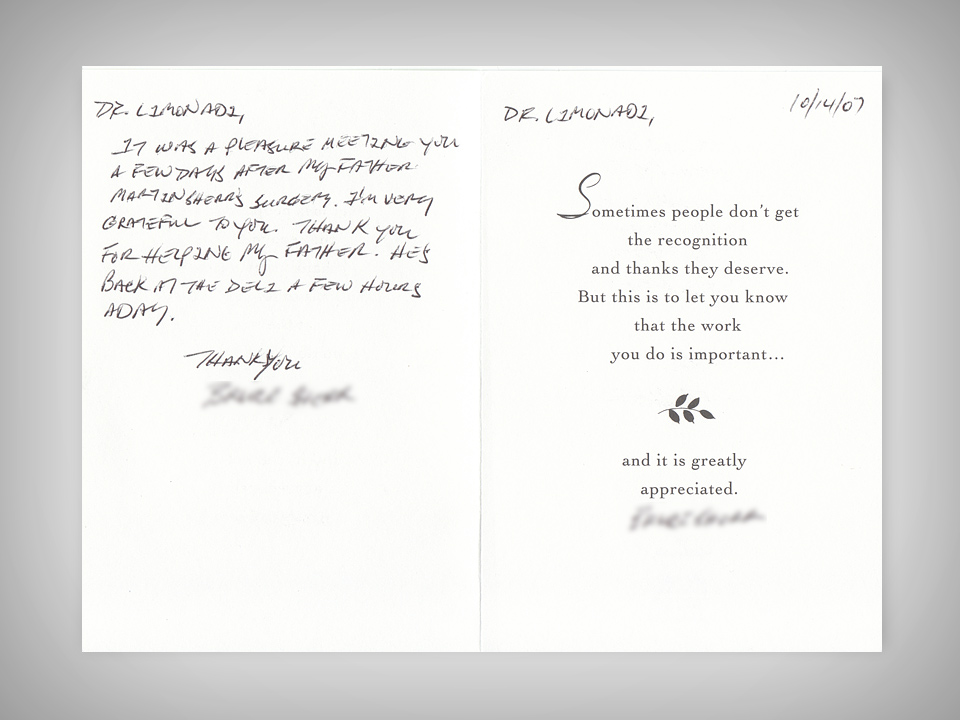 DR. LIMONADI,
IT WAS A PLEASURE MEETING YOU
A FEW DAYS AFTER MY FATHER
MARTIN SHERR'S SURGERY. I'M VERY
GRATEFUL TO YOU. THANK YOU
FOR HELPING MY FATHER. HE'S
BACK AT THE DELI A FEW HOURS
A DAY.
THANK YOU
DR. LIMONADI,
10/14/07
Sometimes people don't get
the recognition
and thanks they deserve.
But this is to let you know
that the work
you do is important...
and it is greatly
appreciated.